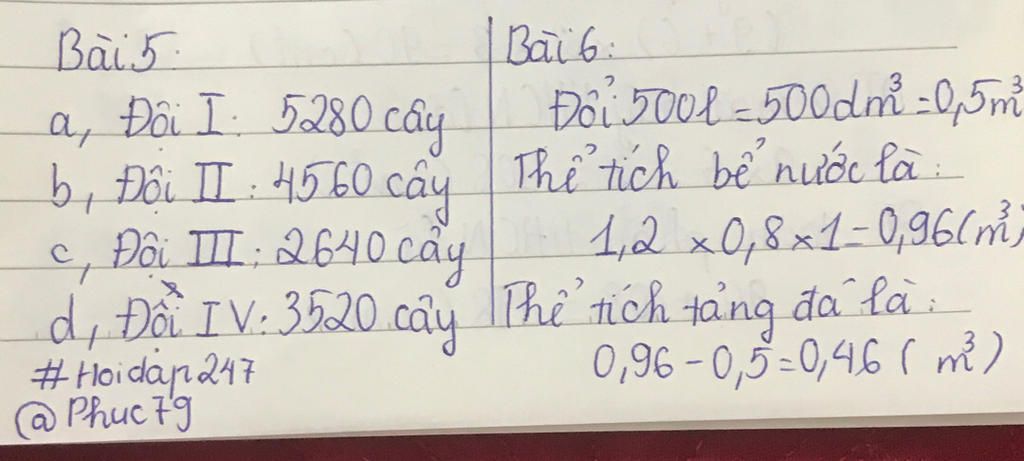 Bài 5:
a, Đội I: 5280 cây
b, Đội II: 4560 cây
c, Đội III: 2640 cây
d, Đội IV: 3520 cây
#Hoidap247
@Phuc79
Bài 6:
Đổi 500l = 500dm³ = 0,5m³
Thể tích bể nước là:
1,2 x 0,8 x 1 = 0,96 (m³)
Thể tích tảng đá là:
0,96 - 0,5 = 0,46 ( m³)